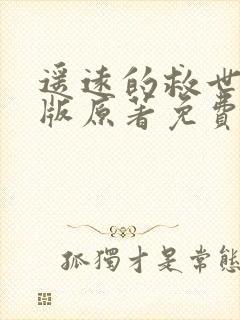 遥远的救世
版原著免費
孤獨才是常態